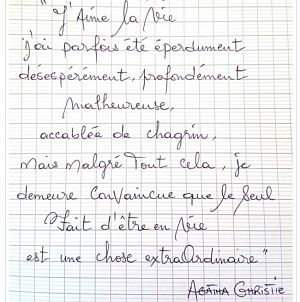 "J'Aime la Vie
j'ai parfois été éperdument
désespérément, profondément
malheureuse,
accablée de chagrin,
mais malgré Tout cela, je
demeure Convaincue que le seul
Fait d'être en Vie
est une chose extraOrdinaire"
AGATHA CHRISTIE